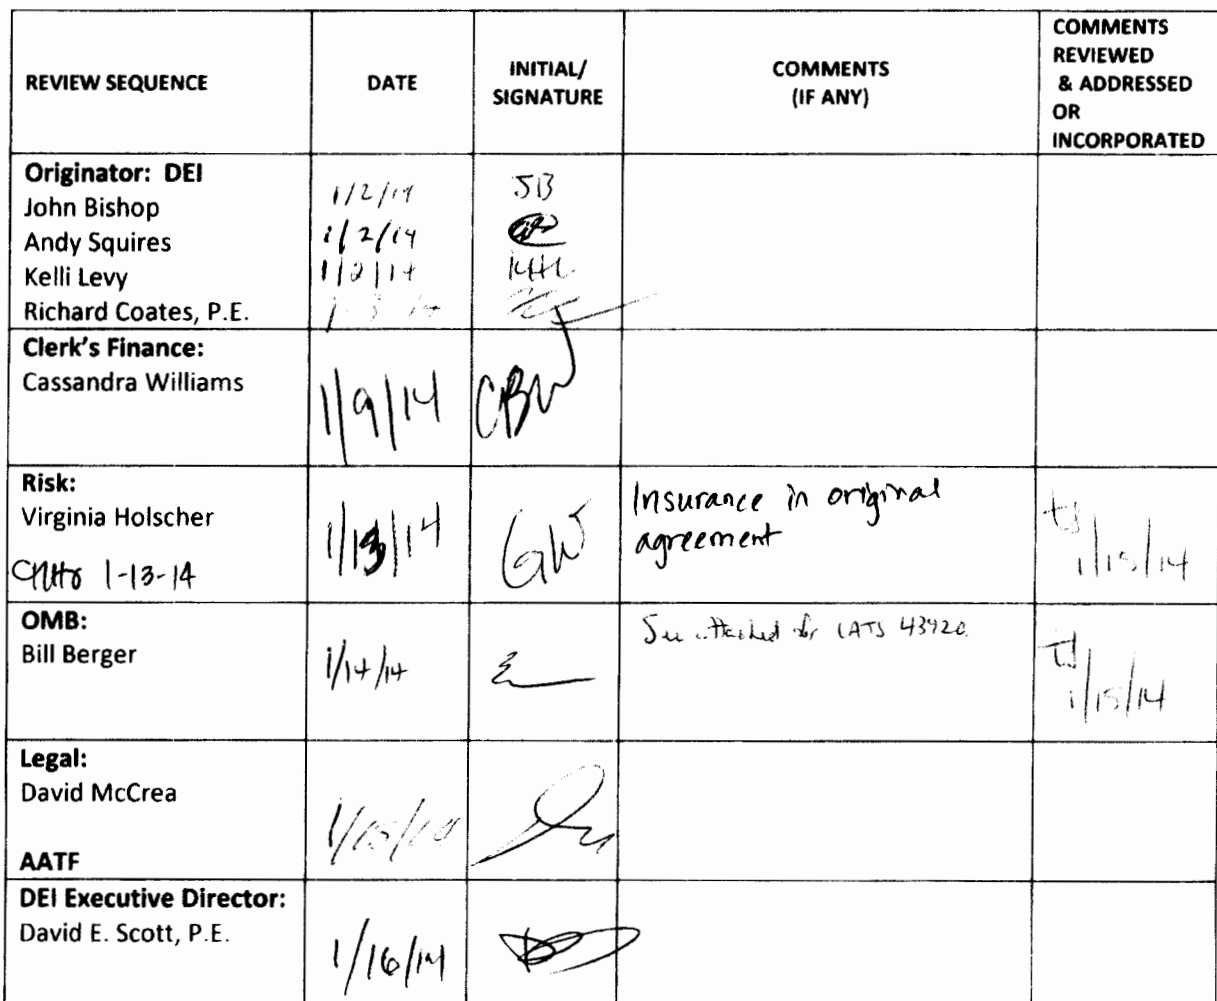 REVIEW SEQUENCE
DATE
INITIAL/
SIGNATURE
COMMENTS
(IF ANY)
COMMENTS
REVIEWED
& ADDRESSED
OR
INCORPORATED
Originator: DEI
John Bishop 1/2/14 JB
Andy Squires 1/2/14
Kelli Levy 1/2/14 KHL
Richard Coates, P.E.
Clerk's Finance:
Cassandra Williams
1/9/14 CBW
Risk:
Virginia Holscher
1-13-14
1/13/14 GW
Insurance in original
agreement
1/15/14
OMB:
Bill Berger
1/14/14
See attached for CATS 43920.
1/15/14
Legal:
David McCrea
1/15/14
AATF
DEI Executive Director:
David E. Scott, P.E.
1/16/14